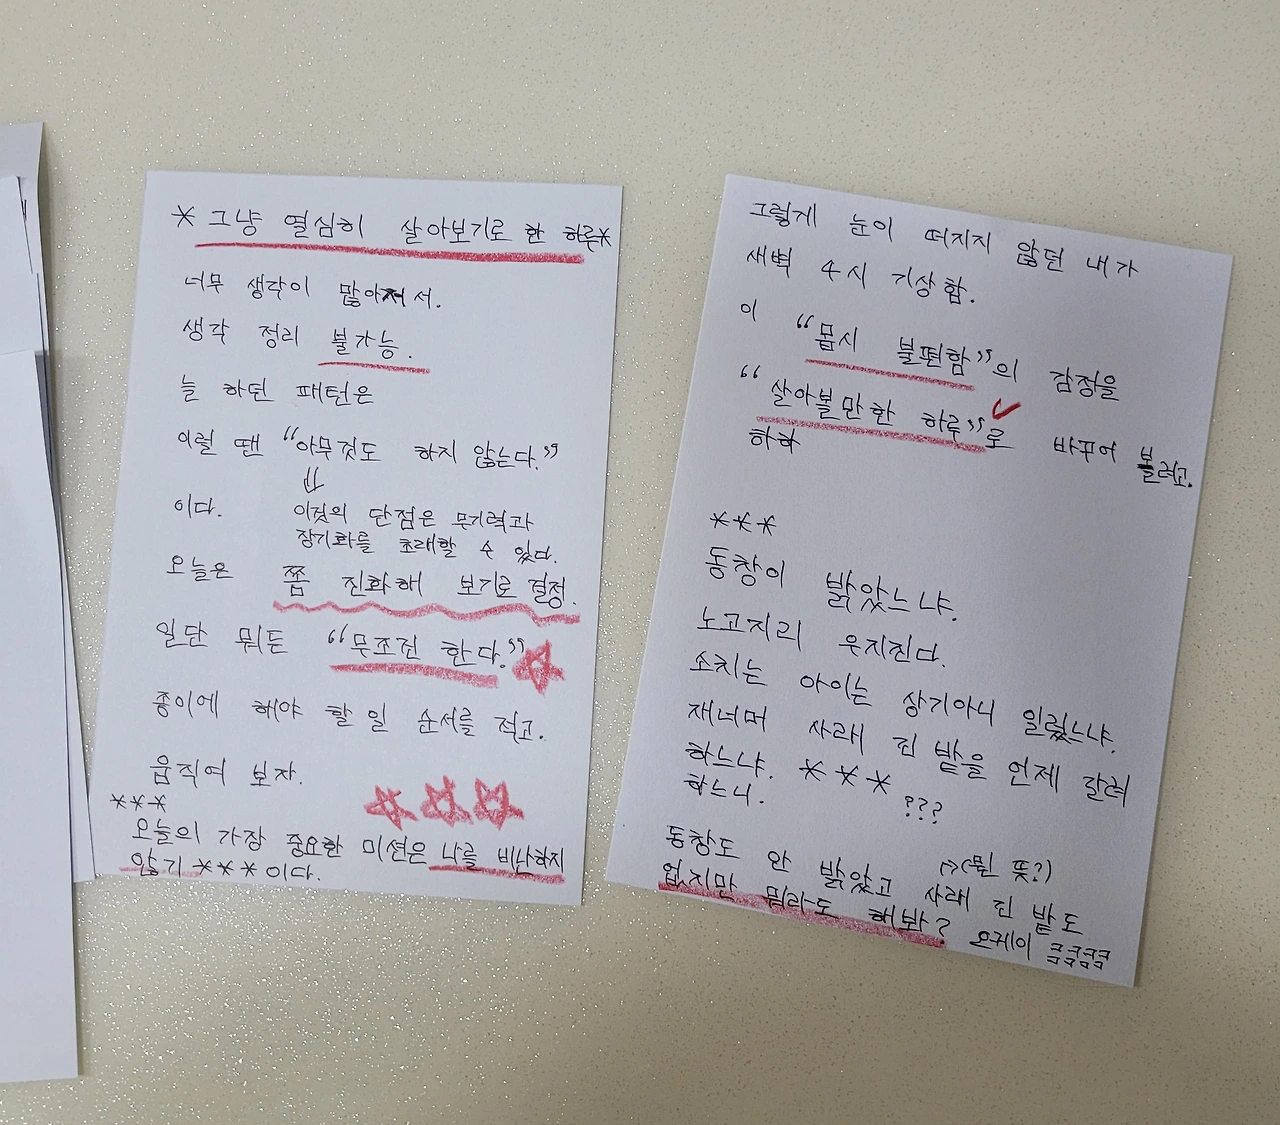 * 그냥 열심히 살아보기로 한 하루*
너무 생각이 많아져서.
생각 정리 불가능.
늘 하던 패턴은
이럴 땐 “아무것도 하지 않는다.”
⇓
이다. 이것의 단점은 무기력과
장기화를 초래할 수 있다.
오늘은 쫌 진화해 보기로 결정.
일단 뭐든 “무조건 한다.”
종이에 해야 할 일 순서를 적고.
움직여 보자.
***
오늘의 가장 중요한 미션은 나를 비난하지
않기 *** 이다.
그렇게 눈이 떠지지 않던 내가
새벽 4시 기상함.
이 “몹시 불편함”의 감정을
“살아볼만한 하루”로 바꾸어 볼려고.
하하
***
동창이 밝았느냐.
노고지리 우지진다.
소치는 아이는 상기아니 일렀느냐.
재너머 사래 긴 밭을 언제 갈려
하느냐. ***
하느니. ???
동창도 안 밝았고 →(뭔 뜻?) 사래 긴 밭도
없지만 뭐라도 해봐? 오케이 ㅋㅋㅋㅋ
ㅋㅋㅋㅋ